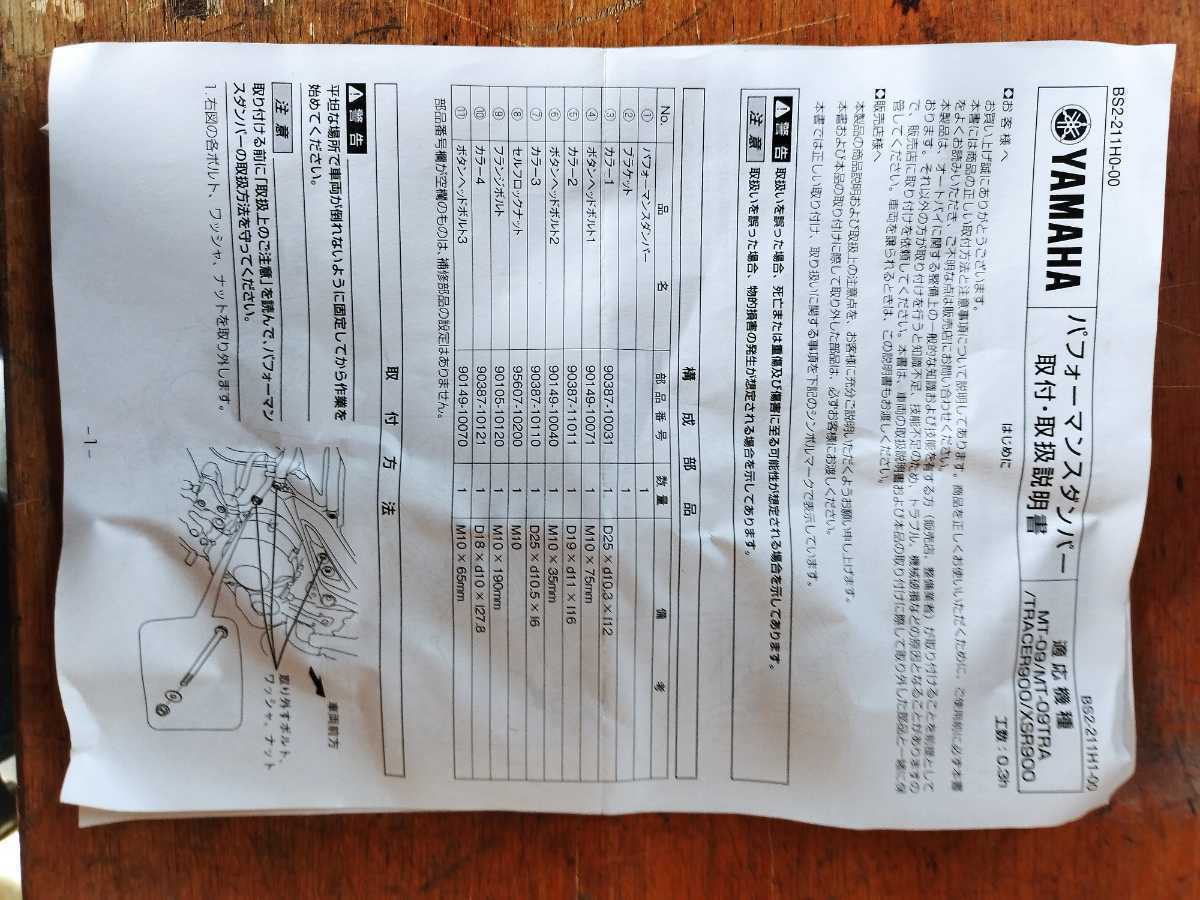 BS2-211H0-00
BS2-211H1-00
YAMAHA
パフォーマンスダンパー
取付・取扱説明書
適応機種
MT-09/MT-09TRA
/TRACER900/XSR900
工数：0.3h
はじめに
お客様へ
お買い上げ誠にありがとうございます。
本書には商品の正しい取付方法と注意事項について説明してあります。商品を正しくお使いいただくために、ご使用前に必ず本書
をよくお読みいただき、ご不明な点は販売店にお問い合わせください。
本製品は、オートバイに関する整備上の一般的な知識および技能を有する方（販売店、整備業者）が取り付けることを前提として
おります。それ以外の方が取り付けを行うと知識不足、技能不足のため、トラブル、機械破損などの原因となることがありますの
で、販売店に取り付けを依頼してください。本書は、車両の取扱説明書および本品の取り付けに際して取り外した部品と一緒に保
管してください。車両を譲られるときは、この説明書もお渡しください。
販売店様へ
本製品の商品説明および取扱上の注意点を、お客様に充分ご説明いただくようお願い申し上げます。
本書および本品の取り付けに際して取り外した部品は、必ずお客様にお渡しください。
本書では正しい取り付け、取り扱いに関する事項を下記のシンボルマークで表示しています。
警告 取扱いを誤った場合、死亡または重傷及び傷害に至る可能性が想定される場合を示してあります。
注意 取扱いを誤った場合、物的損害の発生が想定される場合を示してあります。
構成部品
No. 品名 部品番号 数量 備考
① パフォーマンスダンパー 1
② ブラケット 1
③ カラー1 90387-10031 1 D25×d10.3×l12
④ ボタンヘッドボルト1 90149-10071 1 M10×75mm
⑤ カラー2 90387-11011 1 D19×d11×l16
⑥ ボタンヘッドボルト2 90149-10040 1 M10×35mm
⑦ カラー3 90387-10110 1 D25×d10.5×l6
⑧ セルフロックナット 95607-10200 1 M10
⑨ フランジボルト 90105-10120 1 M10×190mm
⑩ カラー4 90387-10121 1 D18×d10×l27.8
⑪ ボタンヘッドボルト3 90149-10070 1 M10×65mm
部品番号欄が空欄のものは、補修部品の設定はありません。
取付方法
警告
平坦な場所で車両が倒れないように固定してから作業を
始めてください。
注意
取り付ける前に「取扱上のご注意」を読んで、パフォーマン
スダンパーの取扱方法を守ってください。
1. 右図の各ボルト、ワッシャ、ナットを取り外します。
車両前方
取り外すボルト、
ワッシャ、ナット
-1-